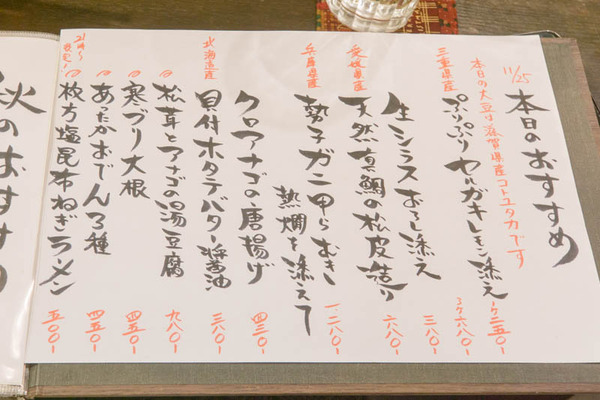 11/25
本日のおすすめ
本日の大豆は滋賀県産コトユタカです
三重県産
ぷりぷりセルガキレモン添え
1ケ 二五〇-
3ケ 六八〇-
生シラスおろし添え
三八〇-
愛媛県産
天然真鯛の松皮造り
六八〇-
兵庫県産
勢子ガニ甲らむき
熱燗を添えて
一二八〇-
クロアナゴの唐揚げ
四三〇-
北海道産
貝付ホタテバター醤油
三八〇-
松茸とアナゴの湯豆腐
九八〇-
寒ブリ大根
四五〇-
あたたかおでん3種
四五〇-
21時〜
限定!
枚方塩昆布ねぎラーメン
五〇〇-
秋のおすすめ